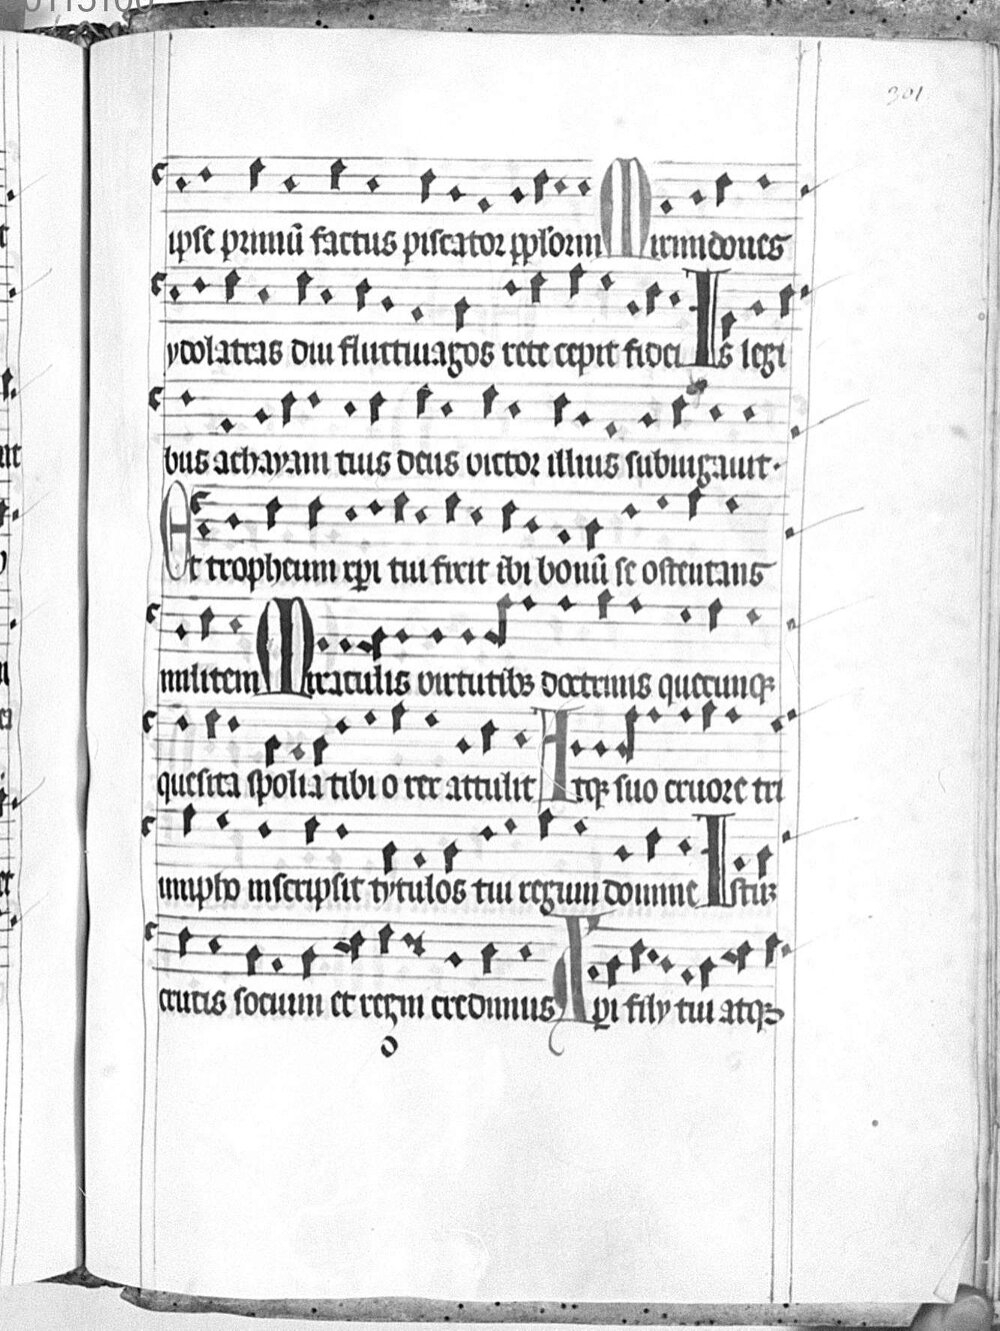 301
ipse primū factus piscator pplorm Mirmidones
ydolatras diu fluctiuagos rete cepit fidei Is legi
bus achayam tuis deus victor illius subiugauit
Et tropheum xpi tui fixit ibi bonū se ostentans
militem Miraculis virtutibꝫ doctrinis quecunqꝫ
quesita spolia tibi o rex attulit Atqꝫ suo cruore tri
umpho inscripsit tytulos tui regum domine Istuꝫ
crucis socium et regni credimus Xpi fily tui atqꝫ